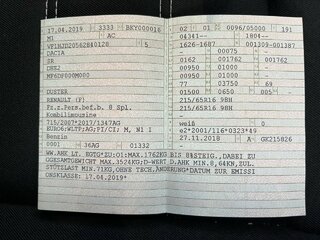 17.04.2019 3333 BKY000016
M1 AC
5
DACIA
SR
DUSTER
RENAULT (F)
Fz.z.Pers.bef.b. 8 Spl.
Kombilimousine
715/2007*2017/1347AG
EURO6;WLTP;AG;PI/CI; M, N1 I
Benzin
0001 36AG 01332
WW.AHK LT. EGTG*ZU:O1:MAX.1762KG BIS 8%STEIG.,DABEI ZU
GGESAMTGEWICHT MAX.3524KG;D-WERT D.AHK MIN.8,64KN,ZUL.
STÜTZLAST MIN.71KG,OHNE TECH.ÄNDERUNG*DATUM ZUR EMISSI
ONSKLASSE: 17.04.2019*
02 01 0096/05000 191
04341-- 1804--
1626-1687 001309-001387
00075 -
0162 001762 001762
00950 01000 -
00950 01000 -
77 03750 69
01500 0680 005
215/65R16 98H
215/65R16 98H
-
weiß 0
e2*2001/116*0323*49
27.11.2018 A GK215826